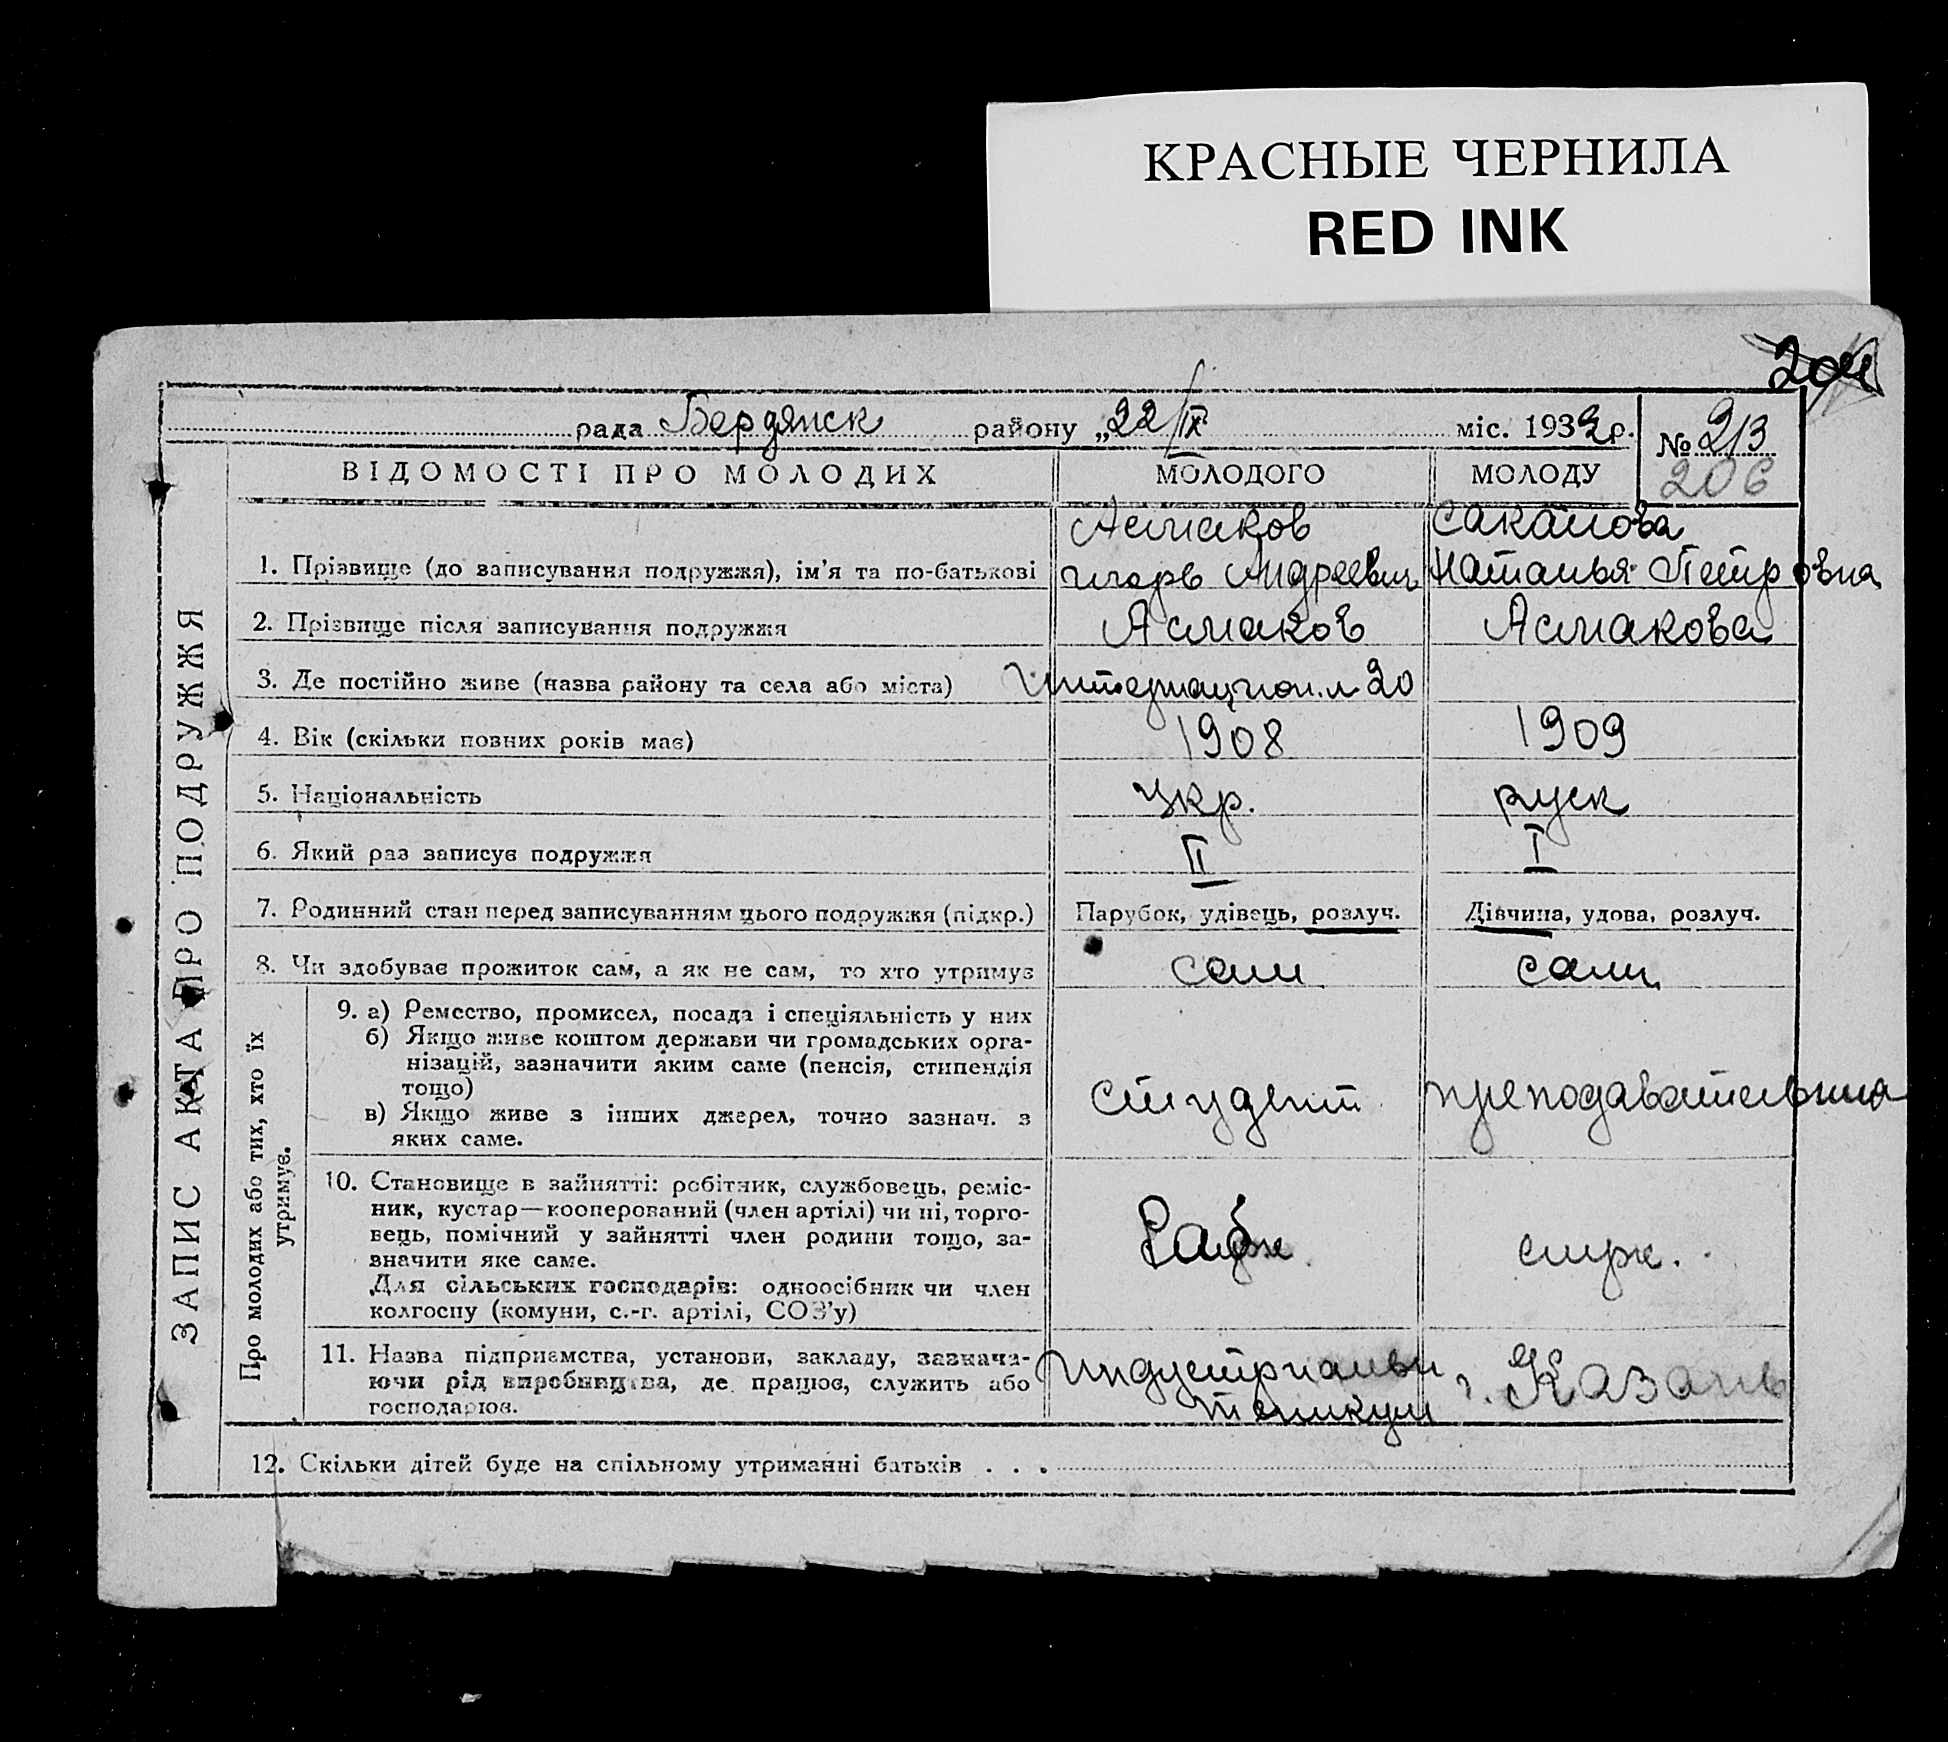 КРАСНЫЕ ЧЕРНИЛА
RED INK
204
рада Бердянск району „22/IX міс. 1932р. № 213
206
ЗАПИС АКТА ПРО ПОДРУЖЖЯ
ВІДОМОСТІ ПРО МОЛОДИХ МОЛОДОГО МОЛОДУ
Асмаков
Игорь Андреевич
Наталья Петровна
1. Прізвище (до записування подружжя), ім'я та по-батькові
2. Прізвище після записування подружжя Асмаков Асмакова
3. Де постійно живе (назва району та села або міста) Интернацион.л 20
4. Вік (скільки повних років має) 1908 1909
5. Національність укр. руск
6. Який раз записує подружжя II I
7. Родинний стан перед записуванням цього подружжя (підкр.) Парубок, удівець, розлуч. Дівчина, удова, розлуч.
8. Чи здобуває прожиток сам, а як не сам, то хто утримує сам сама
Про молодих або тих, хто їх
утримує.
9. а) Ремество, промисел, посада і спеціяльність у них
б) Якщо живе коштом держави чи громадських орга-
нізацій, зазначити яким саме (пенсія, стипендія
тощо)
в) Якщо живе з інших джерел, точно зазнач. з
яких саме.
студент преподавательница
10. Становище в зайнятті: робітник, службовець, реміс-
ник, кустар—кооперований (член артілі) чи ні, торго-
вець, помічний у зайнятті член родини тощо, за-
значити яке саме.
Для сільських господарів: одноосібник чи член
колгоспу (комуни, с.-г. артілі, СОЗ'у)
11. Назва підприємства, установи, закладу, зазнача-
ючи рід виробництва, де працює, служить або
господарює.
Индустриальн
техникум
г. Казань
12. Скільки дітей буде на спільному утриманні батьків . . .